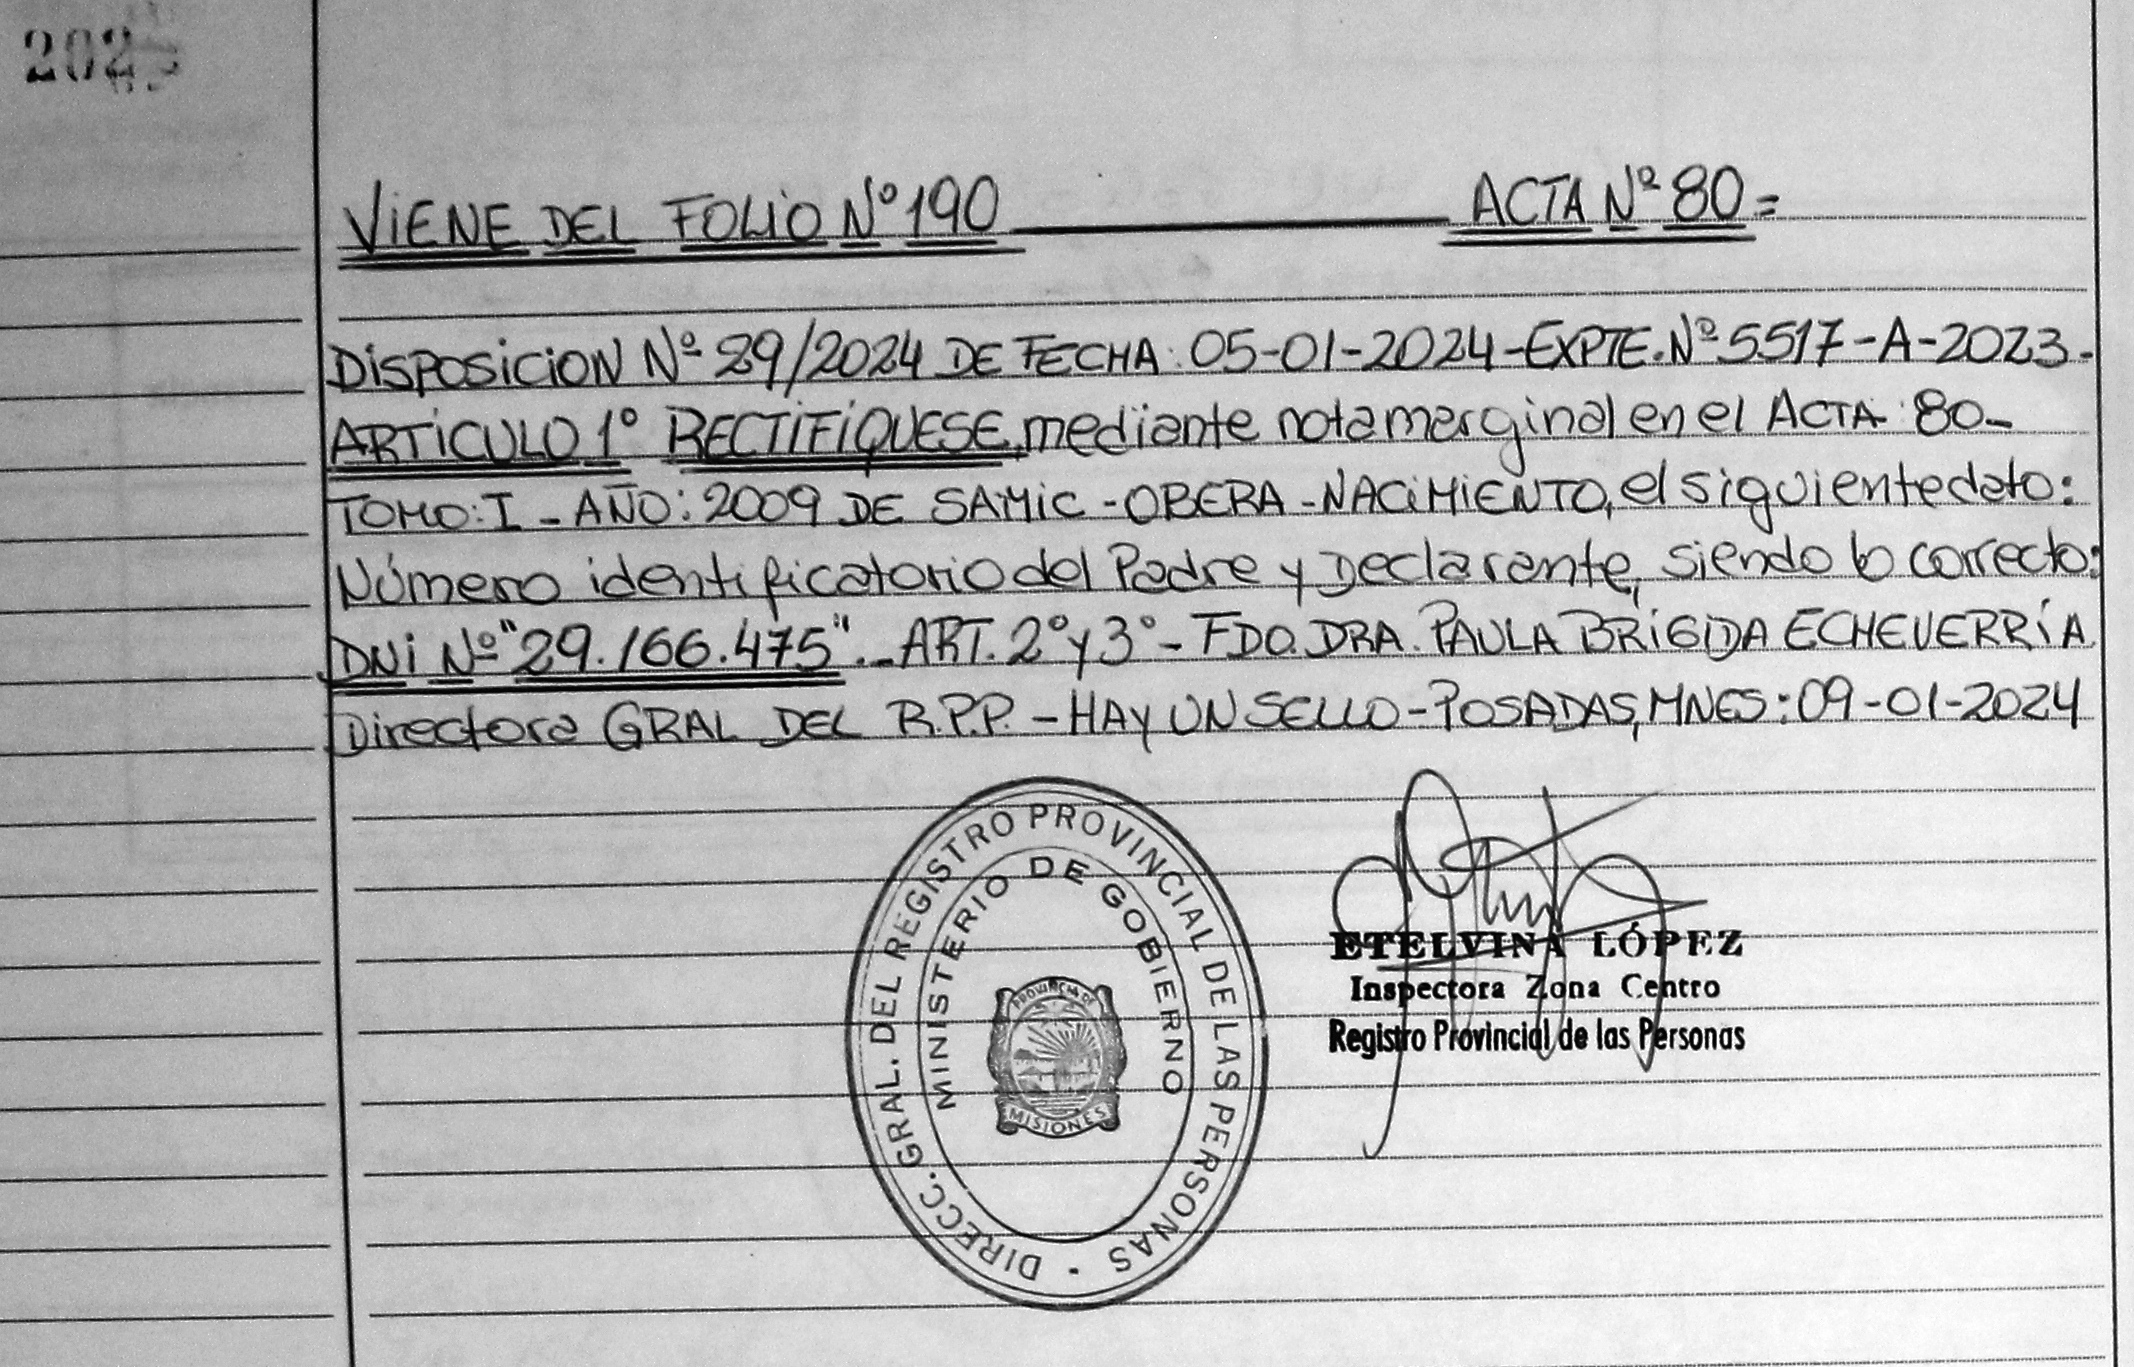 202
VIENE DEL FOLIO Nº 190 ACTA Nº 80=
DISPOSICION Nº 89/2024 DE FECHA: 05-01-2024-EXPTE. Nº 5517-A-2023.
ARTICULO 1º RECTIFIQUESE, mediante nota marginal en el ACTA: 80-
TOMO: I - AÑO: 2009 DE SAMIC - OBERA - NACIMIENTO, el siguiente dato:
Número identificatorio del Padre y Declarante, siendo lo correcto:
DNI Nº "29.166.475". - ART. 2º y 3º - FDO. DRA. PAULA BRIGIDA ECHEVERRÍA
Directora GRAL DEL R.P.P. - HAY UN SELLO - POSADAS, MNES: 09-01-2024
DIRECC. GRAL. DEL REGISTRO PROVINCIAL DE LAS PERSONAS -
MINISTERIO DE GOBIERNO
PROVINCIA DE
MISIONES
ETELVINA LÓPEZ
Inspectora Zona Centro
Registro Provincial de las Personas